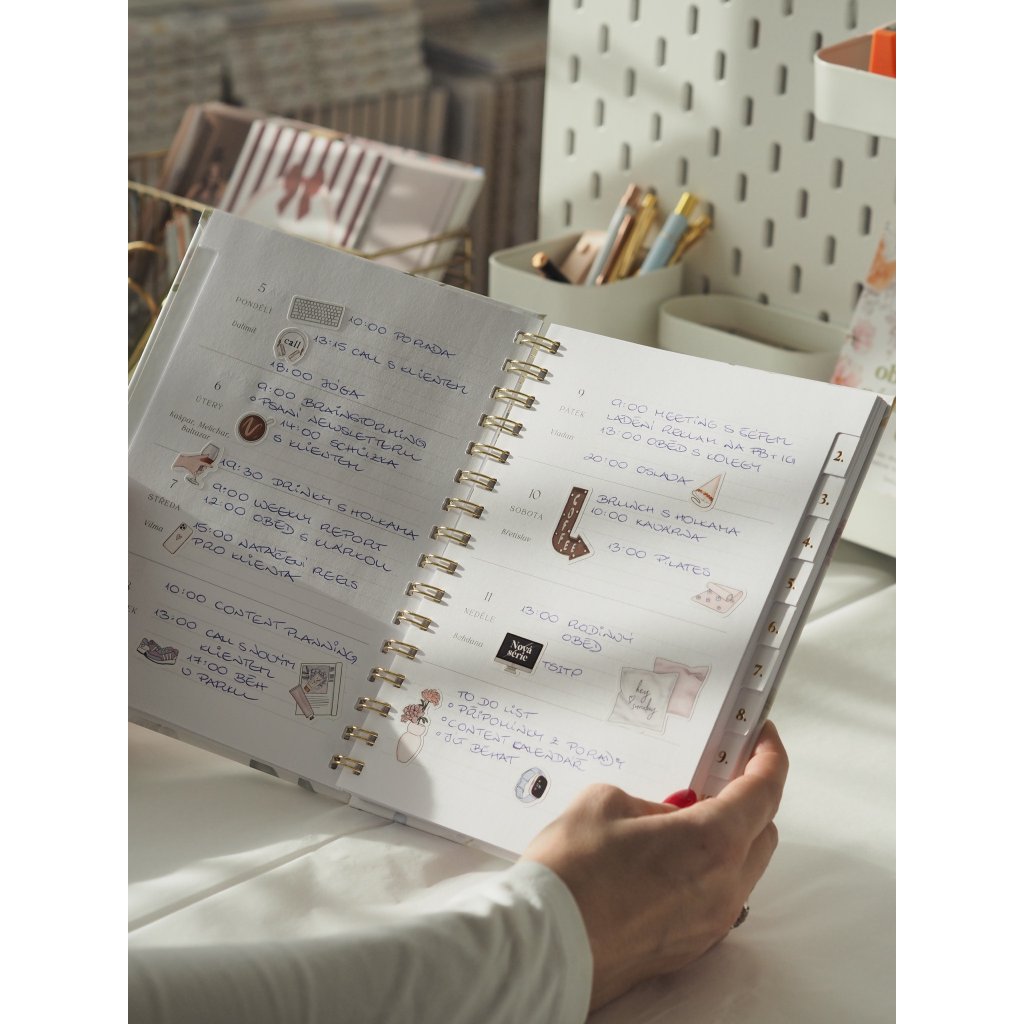 5
PONDĚLÍ
Dalimil
10:00 PORADA
call
13:15 CALL S KLIENTEM
18:00 JÓGA
6
ÚTERÝ
Kašpar, Melichar,
Baltazar
9:00 BRAINSTORMING
PSANÍ NEWSLETTERU
14:00 SCHŮZKA
S KLIENTEM
19:30 DRINKY S HOLKAMA
7
STŘEDA
Vilma
9:00 WEEKLY REPORT
12:00 OBĚD S KLÁRKOU
15:00 NATÁČENÍ REELS
PRO KLIENTA
10:00 CONTENT PLANNING
13:00 CALL S NOVÝM
KLIENTEM
17:00 BĚH
V PARKU
9
PÁTEK
Vladan
9:00 MEETING S ŠÉFEM
LADĚNÍ REKLAM NA FB+IG
13:00 OBĚD S KOLEGY
20:00 OSLAVA
10
SOBOTA
Břetislav
COFFEE
BRUNCH S HOLKAMA
10:00 KAVÁRNA
13:00 PILATES
11
NEDĚLE
Bohdana
13:00 RODINNÝ
OBĚD
Nová
série
TSITP
hey
sunday
TO DO LIST
PŘIPOMÍNKY Z PORADY
CONTENT KALENDÁŘ
JÍT BĚHAT
2.
3.
4.
5.
6.
7.
8.
9.